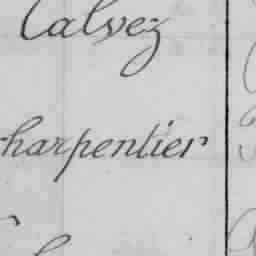 Calvez
charpentier